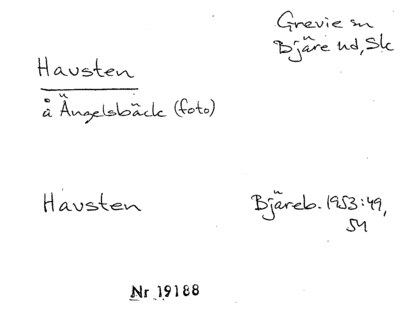 Grevie sn
Bjäre hd, Sk
Hausten
å Ängelsbäck (foto)
Hausten
Bjäreb. 1953:49,
54
Nr 19188